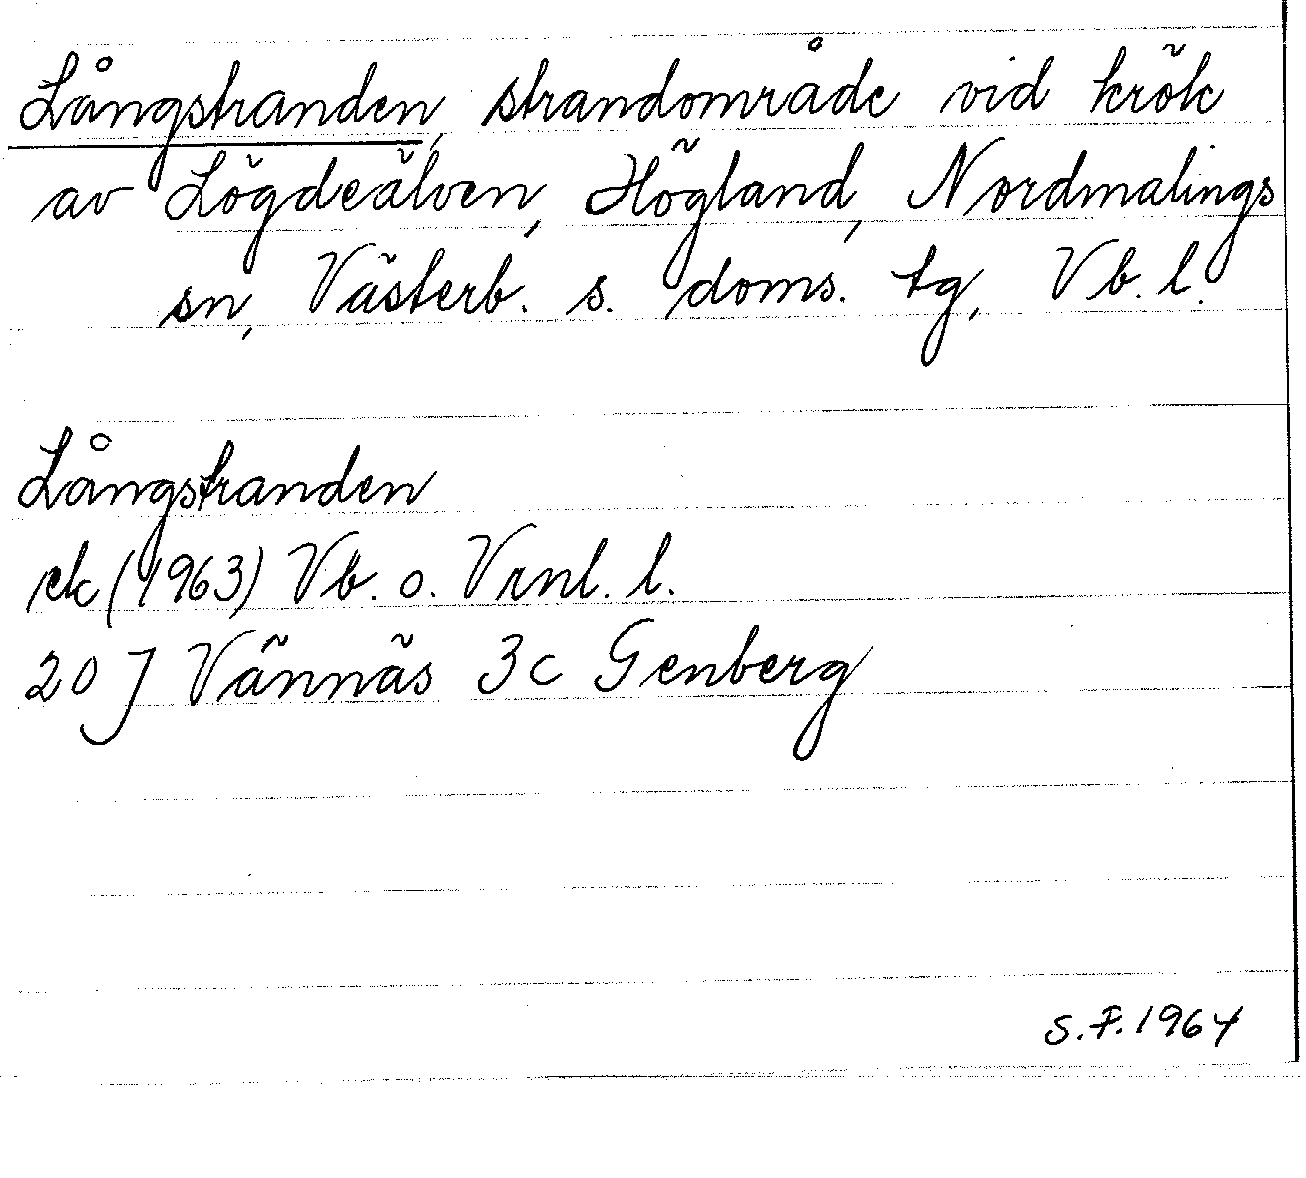 Långstranden, strandområde vid krök
av Lögdeälven, Högland, Nordmalings
sn, Västerb. s. doms. tg, Vb. l.
Långstranden
ek (1963) Vb. o. Vrnl. l.
20 J Vännäs 3c Genberg
S.F. 1964